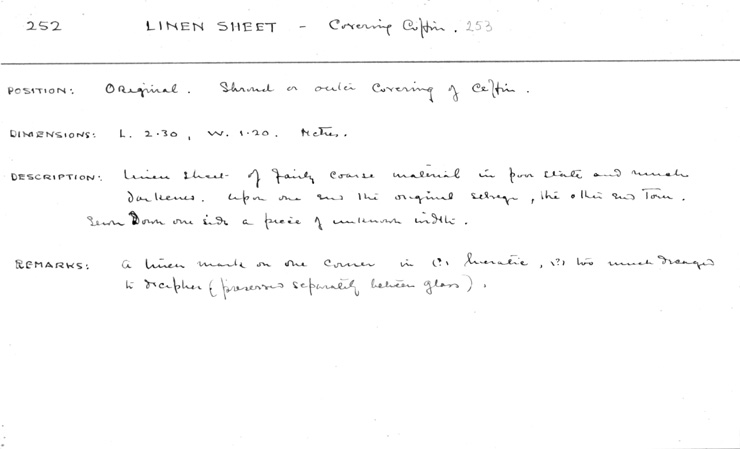 252 LINEN SHEET - Covering Coffin. 253
POSITION: Original. Shroud or outer covering of Coffin.
DIMENSIONS: L. 2·30, W. 1·20. Metres.
DESCRIPTION: Linen sheet of fairly coarse material in poor state and much
darkened. Upon one end the original selvege, the other end torn.
Sewn Down one side a piece of unknown width.
REMARKS: A linen mark on one corner in (?) hieratic, (?) too much decayed
to decipher (preserved separately between glass).